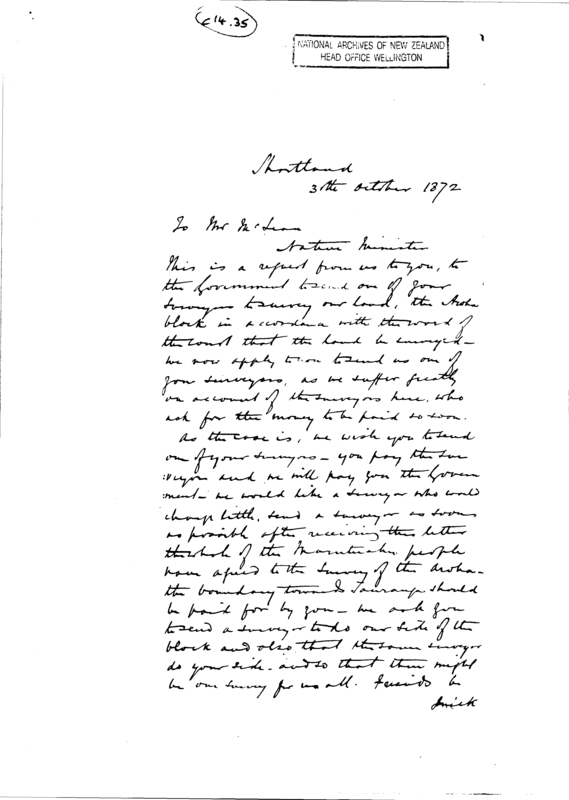 C14.35
NATIONAL ARCHIVES OF NEW ZEALAND
HEAD OFFICE WELLINGTON
Shortland
30th October 1872
To Mr McLean
Native Minister
This is a request from us to you, to
the Government to send one of your
Surveyors to survey our land, the Aroha
block in accordance with the word of
the court that the land be surveyed –
we now apply to you to send us one of
your surveyors, as we suffer greatly
on account of the surveyors here, who
ask for the money to be paid so soon.
As the case is, we wish you to send
one of your surveyors – you pay the sur
veyor and we will pay you the Govern
ment – we would like a surveyor who would
charge little, send a surveyor as soon
as possible after receiving this letter
the whole of the Marutuahu people
have agreed to the survey of the Aroha –
the boundary towards Tauranga should
be paid for by you – we ask you
to send a surveyor to do our side of the
block and also that the same surveyor
do your side – and so that there might
be one survey for us all. Friends be
quick